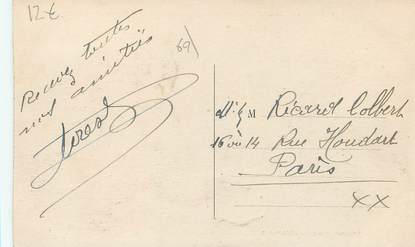 12€
69)
Recevez toutes
mes amitiés
M Ricard Colbert
16 ou 14 Rue Houdart
Paris
XX